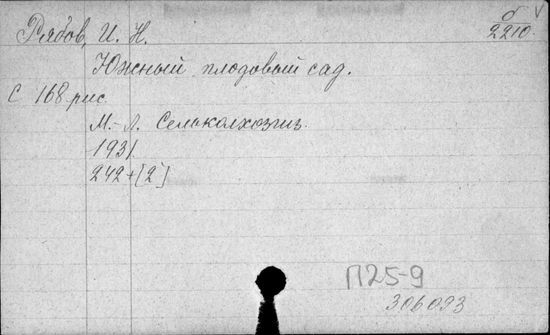 Рябов, И. Н.
б
2210.
Южный плодовый сад.
С 168 рис.
М.-Л. Сельколхозгиз.
1931.
242+[2]
П25-9
306093